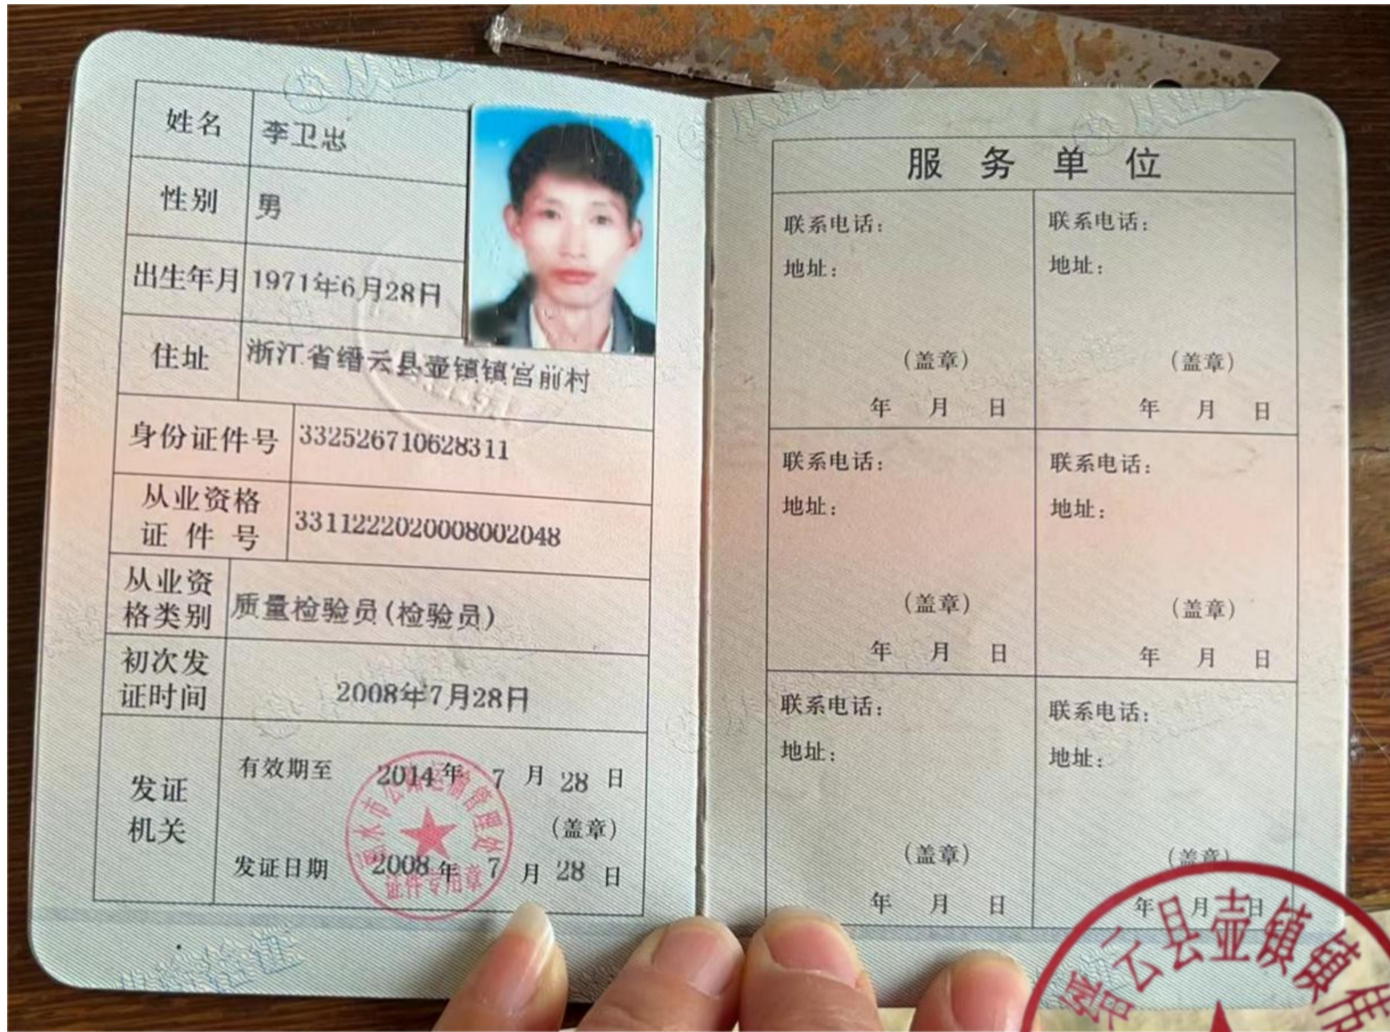 姓名 李卫忠
性别 男
出生年月 1971年6月28日
住址 浙江省缙云县壶镇镇宫前村
身份证件号 332526710628311
从业资格
证件号 3311222020008002048
从业资
格类别 质量检验员(检验员)
初次发
证时间 2008年7月28日
发证
机关
有效期至 2014年 7 月 28 日
(盖章)
发证日期 2008年 7 月 28 日
丽水市公路运输管理处
证件专用章
服务单位
联系电话:
地址:
(盖章)
年 月 日
联系电话:
地址:
(盖章)
年 月 日
联系电话:
地址:
(盖章)
年 月 日
联系电话:
地址:
(盖章)
年 月 日
联系电话:
地址:
(盖章)
年 月 日
联系电话:
地址:
(盖章)
年 月 日
缙云县壶镇镇伟